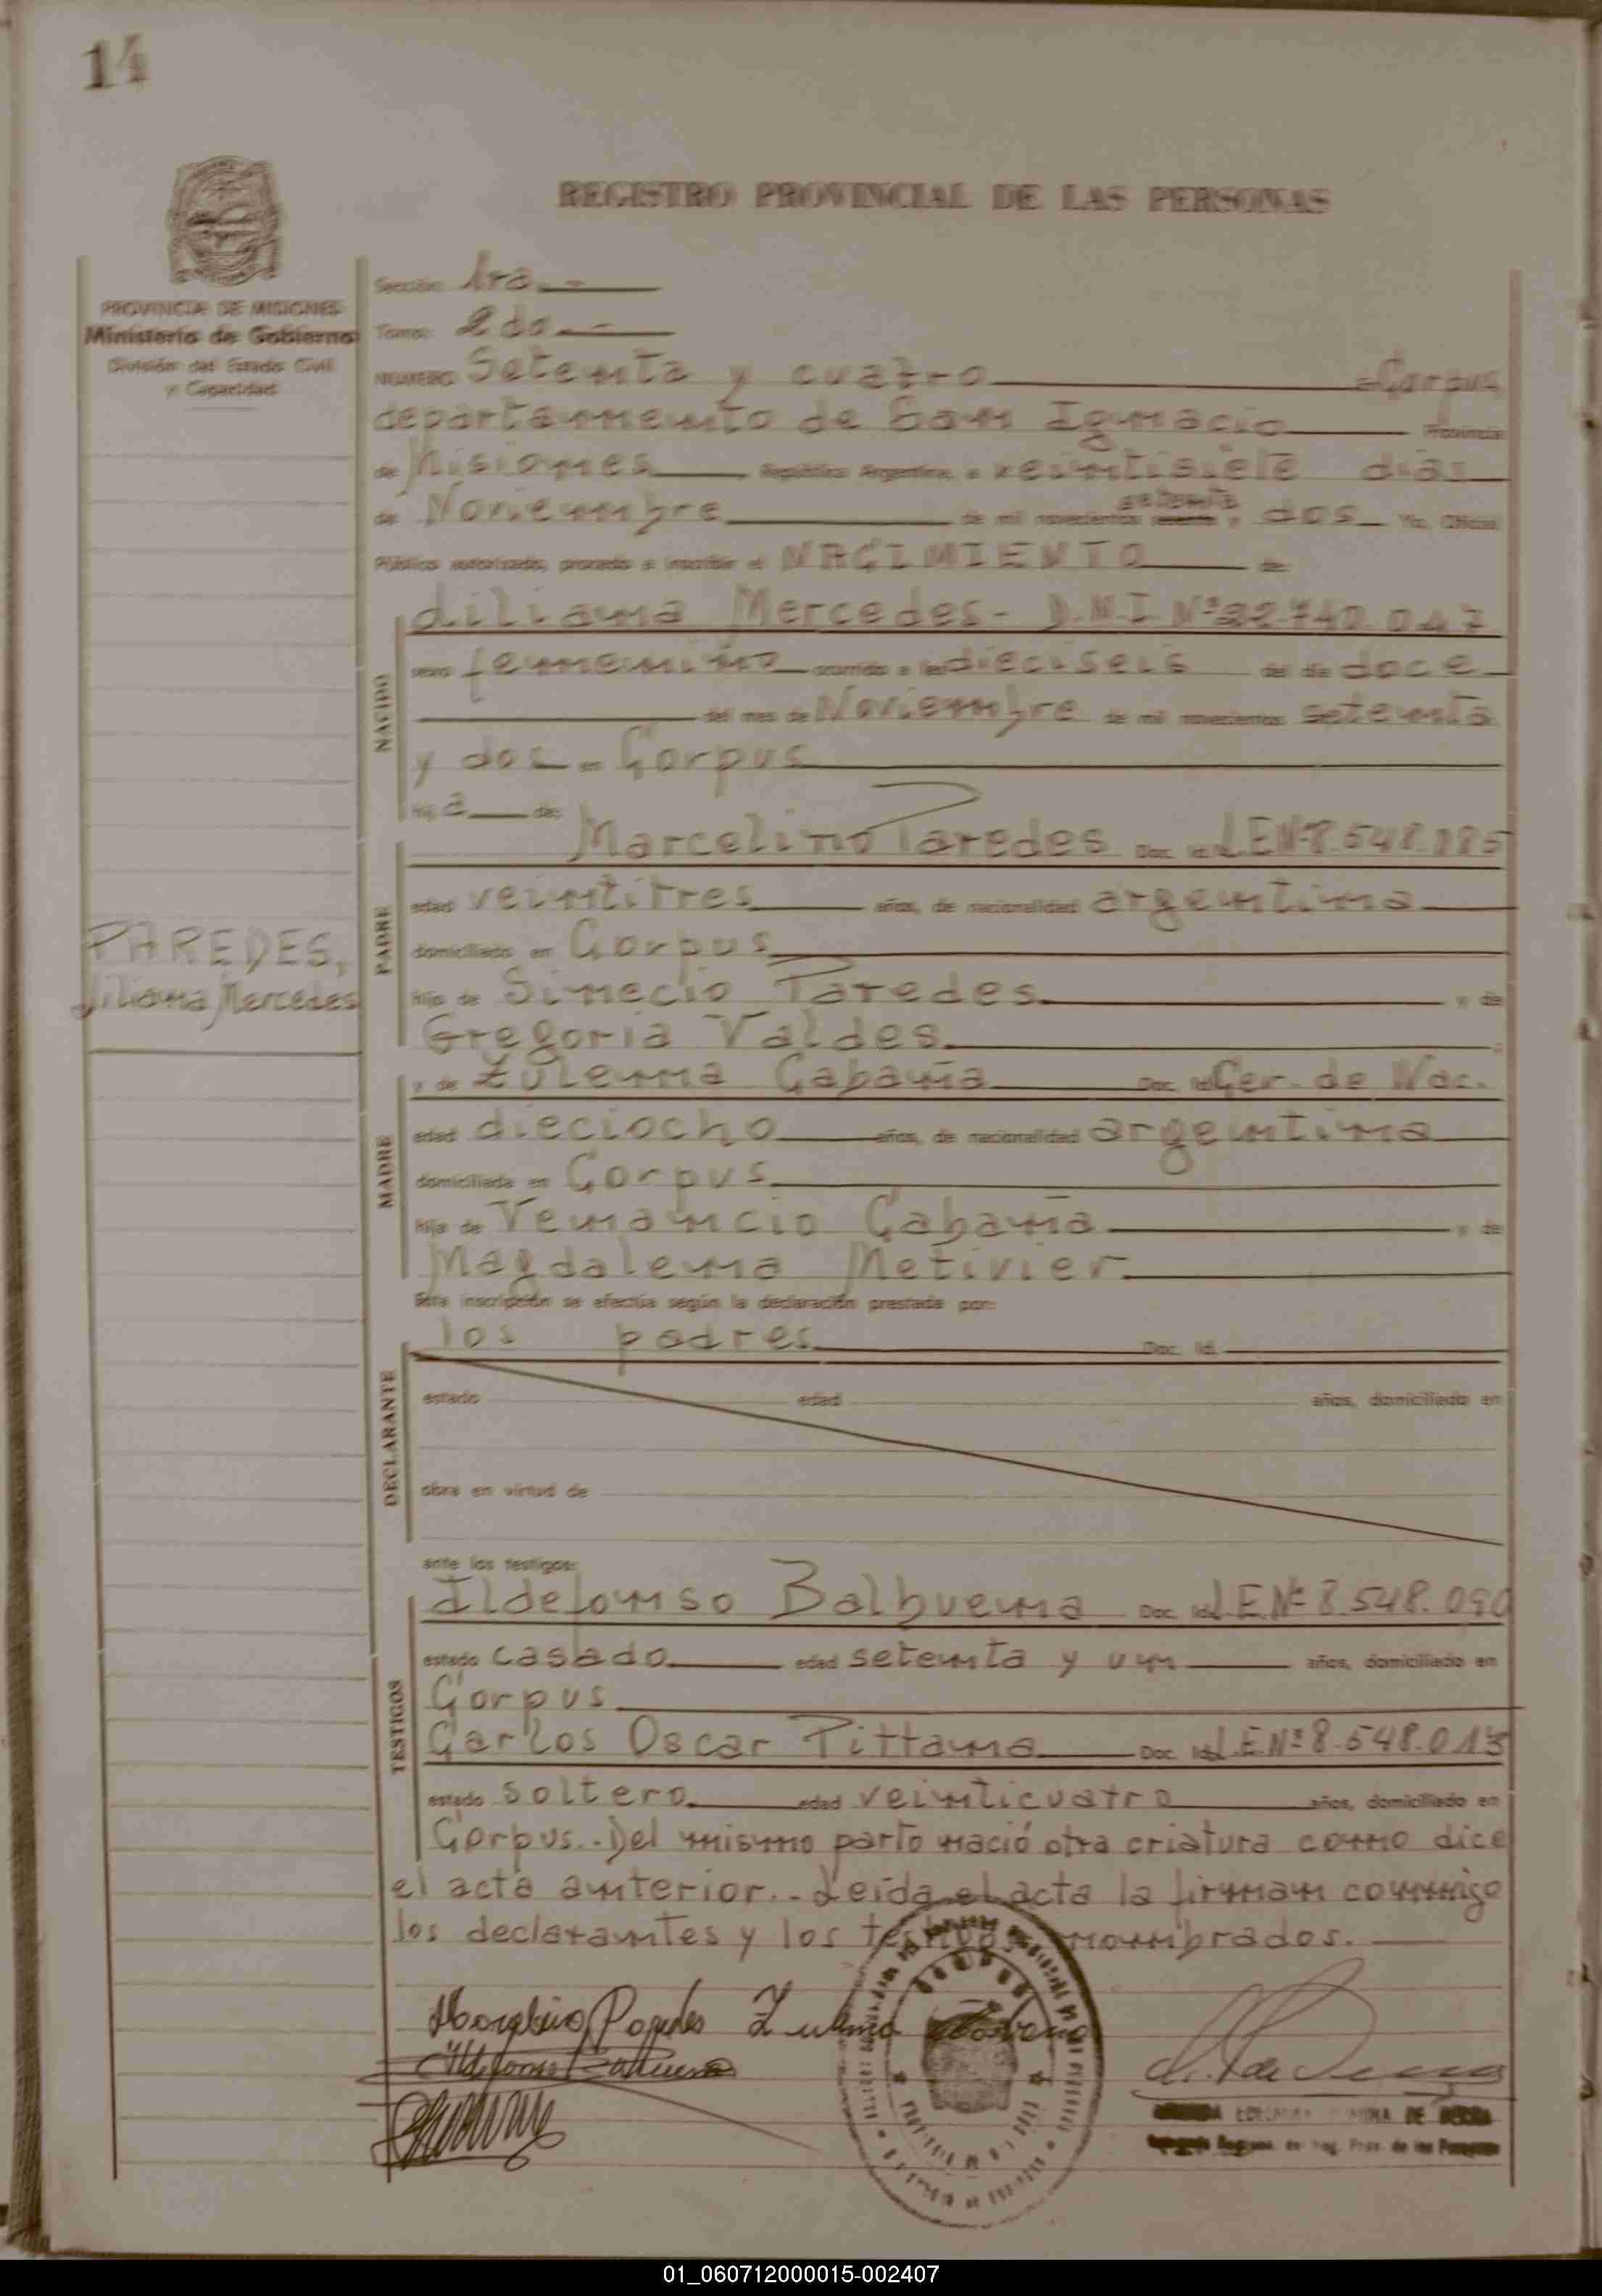 14
REGISTRO PROVINCIAL DE LAS PERSONAS
PROVINCIA DE MISIONES
Ministerio de Gobierno
División del Estado Civil
y Capacidad
Sección: 1ra.-
Tomo: 2do.-
NUMERO Setenta y cuatro Corpus
departamento de San Ignacio Provincia
de Misiones República Argentina, a veintisiete días
de Noviembre de mil novecientos setenta y dos Yo, Oficial
Público autorizado, procedo a inscribir el NACIMIENTO de:
NACIDO
Liliana Mercedes- D.N.I Nº 22.740.047
sexo femenino ocurrido a las dieciseis del día doce
del mes de Noviembre de mil novecientos setenta
y dos en Corpus
hij a de:
PADRE
Marcelino Paredes Doc. Id. L.E Nº 8.548.
edad veintitres años, de nacionalidad argentina
domiciliado en Corpus
hijo de Sinecio Paredes y de
Gregoria Valdes
PAREDES,
Liliana Mercedes
MADRE
y de Zulema Cabaña Doc. Id. Cer. de Nac.
edad dieciocho años, de nacionalidad argentina
domiciliada en Corpus
hija de Venancio Cabaña y de
Magdalena Metivier
Esta inscripción se efectúa según la declaración prestada por:
DECLARANTE
los padres Doc. Id.
estado edad años, domiciliado en
obra en virtud de
ante los testigos:
TESTIGOS
Ildefonso Balbuena Doc. Id. L.E. Nº 8.548.090
estado casado edad setenta y un años, domiciliado en
Corpus
Carlos Oscar Pittana Doc. Id. L.E. Nº 8.548.013
estado soltero edad veinticuatro años, domiciliado en
Corpus.. Del mismo parto nació otra criatura como dice
el acta anterior.- Leída el acta la firman conmigo
los declarantes y los testigos nombrados.
Marcelino Paredes Zulema Cabaña
Ildefonso Balbuena
DE
Reg. Prov. de las Personas
01_060712000015-002407